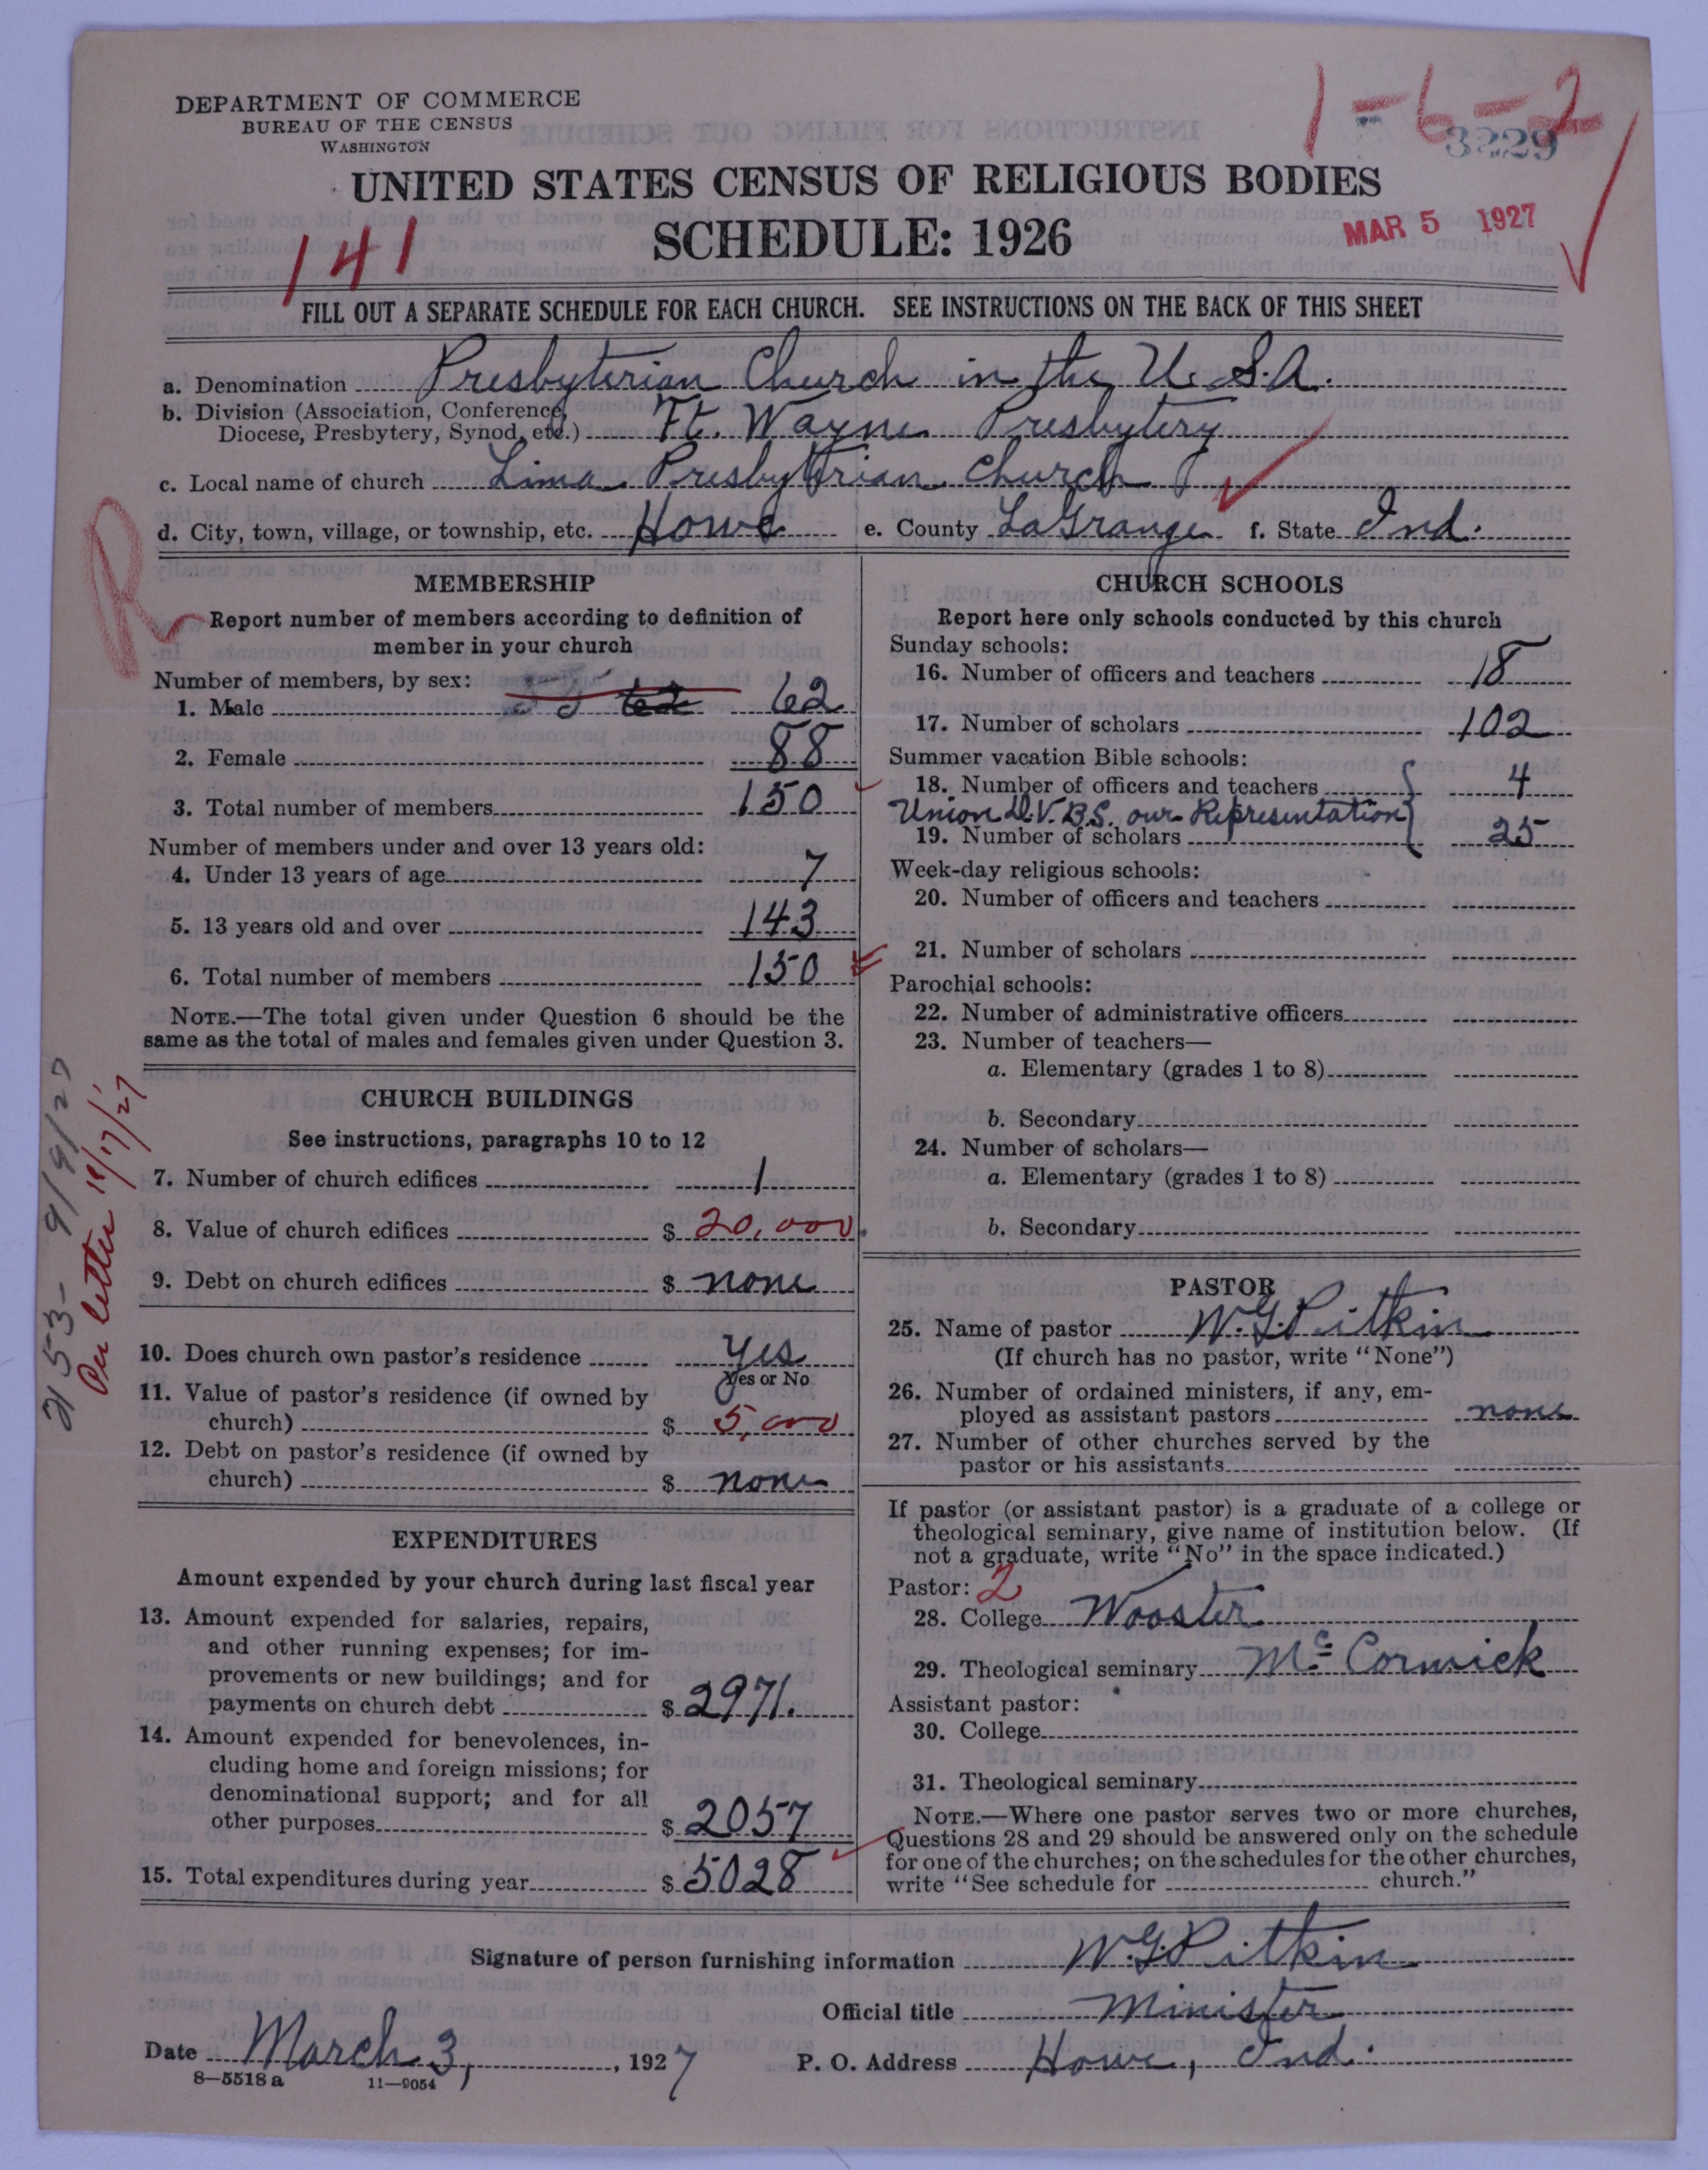 DEPARTMENT OF COMMERCE
BUREAU OF THE CENSUS
WASHINGTON
1-6-2
3229
UNITED STATES CENSUS OF RELIGIOUS BODIES
SCHEDULE: 1926
MAR 5 1927
141
FILL OUT A SEPARATE SCHEDULE FOR EACH CHURCH. SEE INSTRUCTIONS ON THE BACK OF THIS SHEET
a. Denomination Presbyterian Church in the U.S.A.
b. Division (Association, Conference,
Diocese, Presbytery, Synod, etc.) Ft. Wayne Presbytery
c. Local name of church Lima Presbyterian Church
d. City, town, village, or township, etc. Howe e. County LaGrange f. State Ind.
R
MEMBERSHIP
Report number of members according to definition of
member in your church
Number of members, by sex:
1. Male 62 62
2. Female 88
3. Total number of members 150
Number of members under and over 13 years old:
4. Under 13 years of age 7
5. 13 years old and over 143
6. Total number of members 150
NOTE.—The total given under Question 6 should be the
same as the total of males and females given under Question 3.
CHURCH BUILDINGS
See instructions, paragraphs 10 to 12
7. Number of church edifices 1
8. Value of church edifices $ 20,000.
9. Debt on church edifices $ none
10. Does church own pastor's residence Yes
Yes or No
11. Value of pastor's residence (if owned by
church) $ 5,000
12. Debt on pastor's residence (if owned by
church) $ none
2153- 9/9/27
Per letter 10/17/27
EXPENDITURES
Amount expended by your church during last fiscal year
13. Amount expended for salaries, repairs,
and other running expenses; for im-
provements or new buildings; and for
payments on church debt $ 2971.
14. Amount expended for benevolences, in-
cluding home and foreign missions; for
denominational support; and for all
other purposes $ 2057
15. Total expenditures during year $ 5028
CHURCH SCHOOLS
Report here only schools conducted by this church
Sunday schools:
16. Number of officers and teachers 18
17. Number of scholars 102
Summer vacation Bible schools:
18. Number of officers and teachers 4
Union D.V.B.S. our Representation
19. Number of scholars 25
Week-day religious schools:
20. Number of officers and teachers
21. Number of scholars
Parochial schools:
22. Number of administrative officers
23. Number of teachers—
a. Elementary (grades 1 to 8)
b. Secondary
24. Number of scholars—
a. Elementary (grades 1 to 8)
b. Secondary
PASTOR
25. Name of pastor W.G. Pitkin
(If church has no pastor, write "None")
26. Number of ordained ministers, if any, em-
ployed as assistant pastors none
27. Number of other churches served by the
pastor or his assistants
If pastor (or assistant pastor) is a graduate of a college or
theological seminary, give name of institution below. (If
not a graduate, write "No" in the space indicated.)
Pastor: 2
28. College Wooster
29. Theological seminary McCormick
Assistant pastor:
30. College
31. Theological seminary
NOTE.—Where one pastor serves two or more churches,
Questions 28 and 29 should be answered only on the schedule
for one of the churches; on the schedules for the other churches,
write "See schedule for church."
Signature of person furnishing information W.G. Pitkin
Official title Minister
Date March 3, 1927 P. O. Address Howe, Ind.
8—5518 a 11—9054